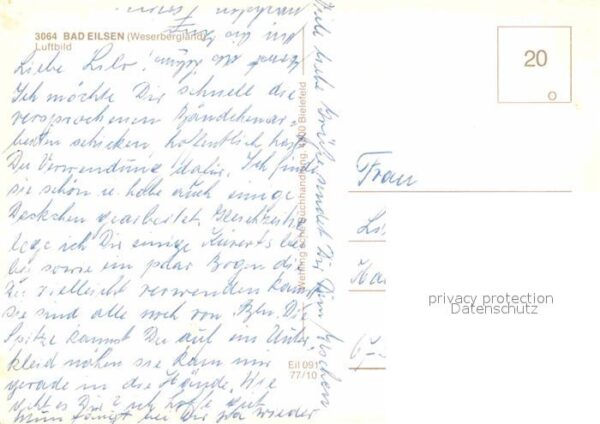 3064 BAD EILSEN (Weserbergland)
Luftbild
Liebe Lilo!
Ich möchte Dir schnell die
versprochenen Bändchenar-
beiten schicken, hoffentlich hast
Du Verwendung dafür. Ich finde
sie schön u. habe auch einige
Deckchen gearbeitet. Gleichzeitig
lege ich Dir einige Kuverts
bei sowie ein paar Bogen die
Du vielleicht verwenden kannst
sie sind alle noch von Bln. Die
Spitze kannst Du auf ein Unter-
kleid nähen sie kam mir
gerade in die Hände. Wie
geht es Dir? ich hoffe gut
nun fängt bei Dir ja wieder
Viele liebe Grüße sendet Dir Dein
Wehling'sche Buchhandlung, 4800 Bielefeld
Eil 091
77/10
20
Frau
privacy protection
Datenschutz